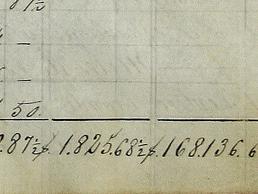 87½
—
—
50.
.87½ $. 1.825.68½ $. 168.136.6